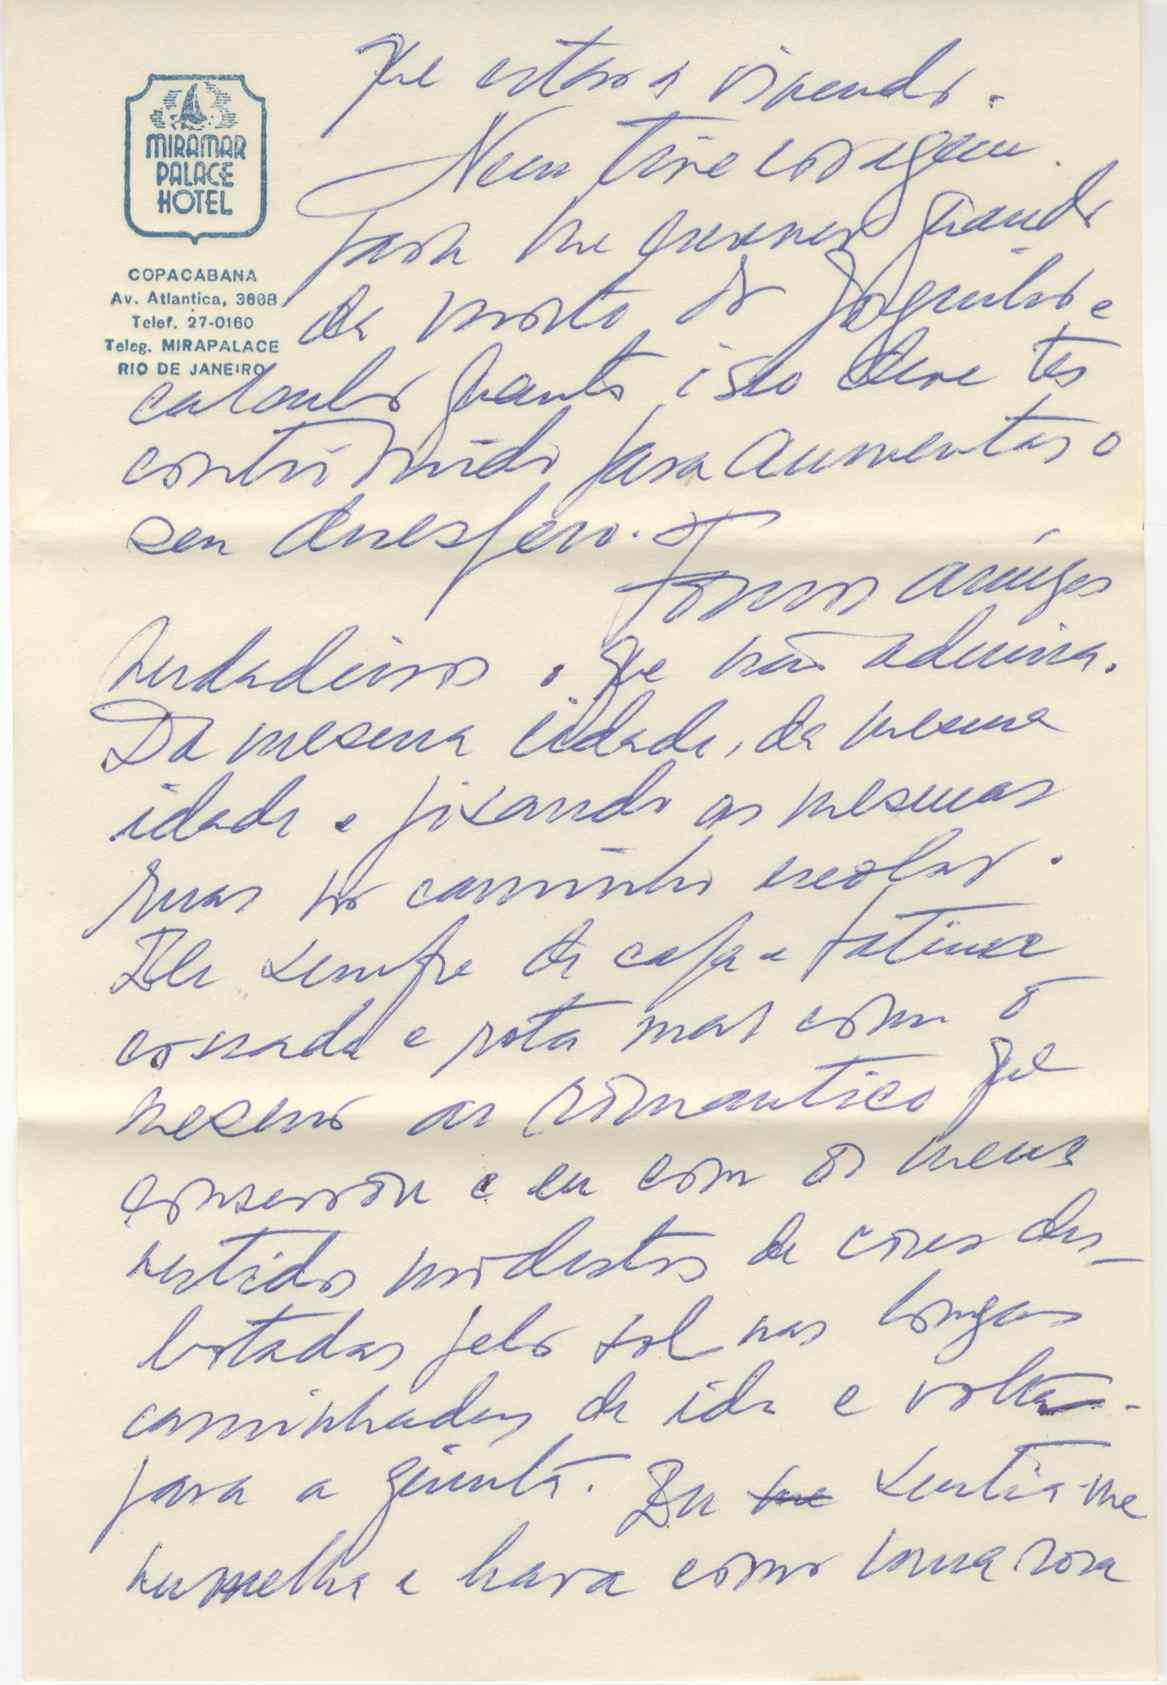 MIRAMAR
PALACE
HOTEL
COPACABANA
Av. Atlantica, 3668
Telef. 27-0160
Teleg. MIRAPALACE
RIO DE JANEIRO
que estava vivendo.
Nem tive coragem
para lhe escrever quando
da morte do Joaquim e
calculo quanto isso deve ter
contribuido para aumentar o
seu desespero.
Fomos amigos
verdadeiros o que não admira.
Da mesma cidade, da mesma
idade e pisando as mesmas
ruas no caminho escolar.
Ele sempre de capa e batina
cossada e rota mas com o
mesmo ar romantico que
conservou e eu com os meus
vestidos modestos de cores des-
botadas pelo sol nas longas
caminhadas de ida e volta
para a quinta. Eu sentia-me
vermelha e brava como uma rosa